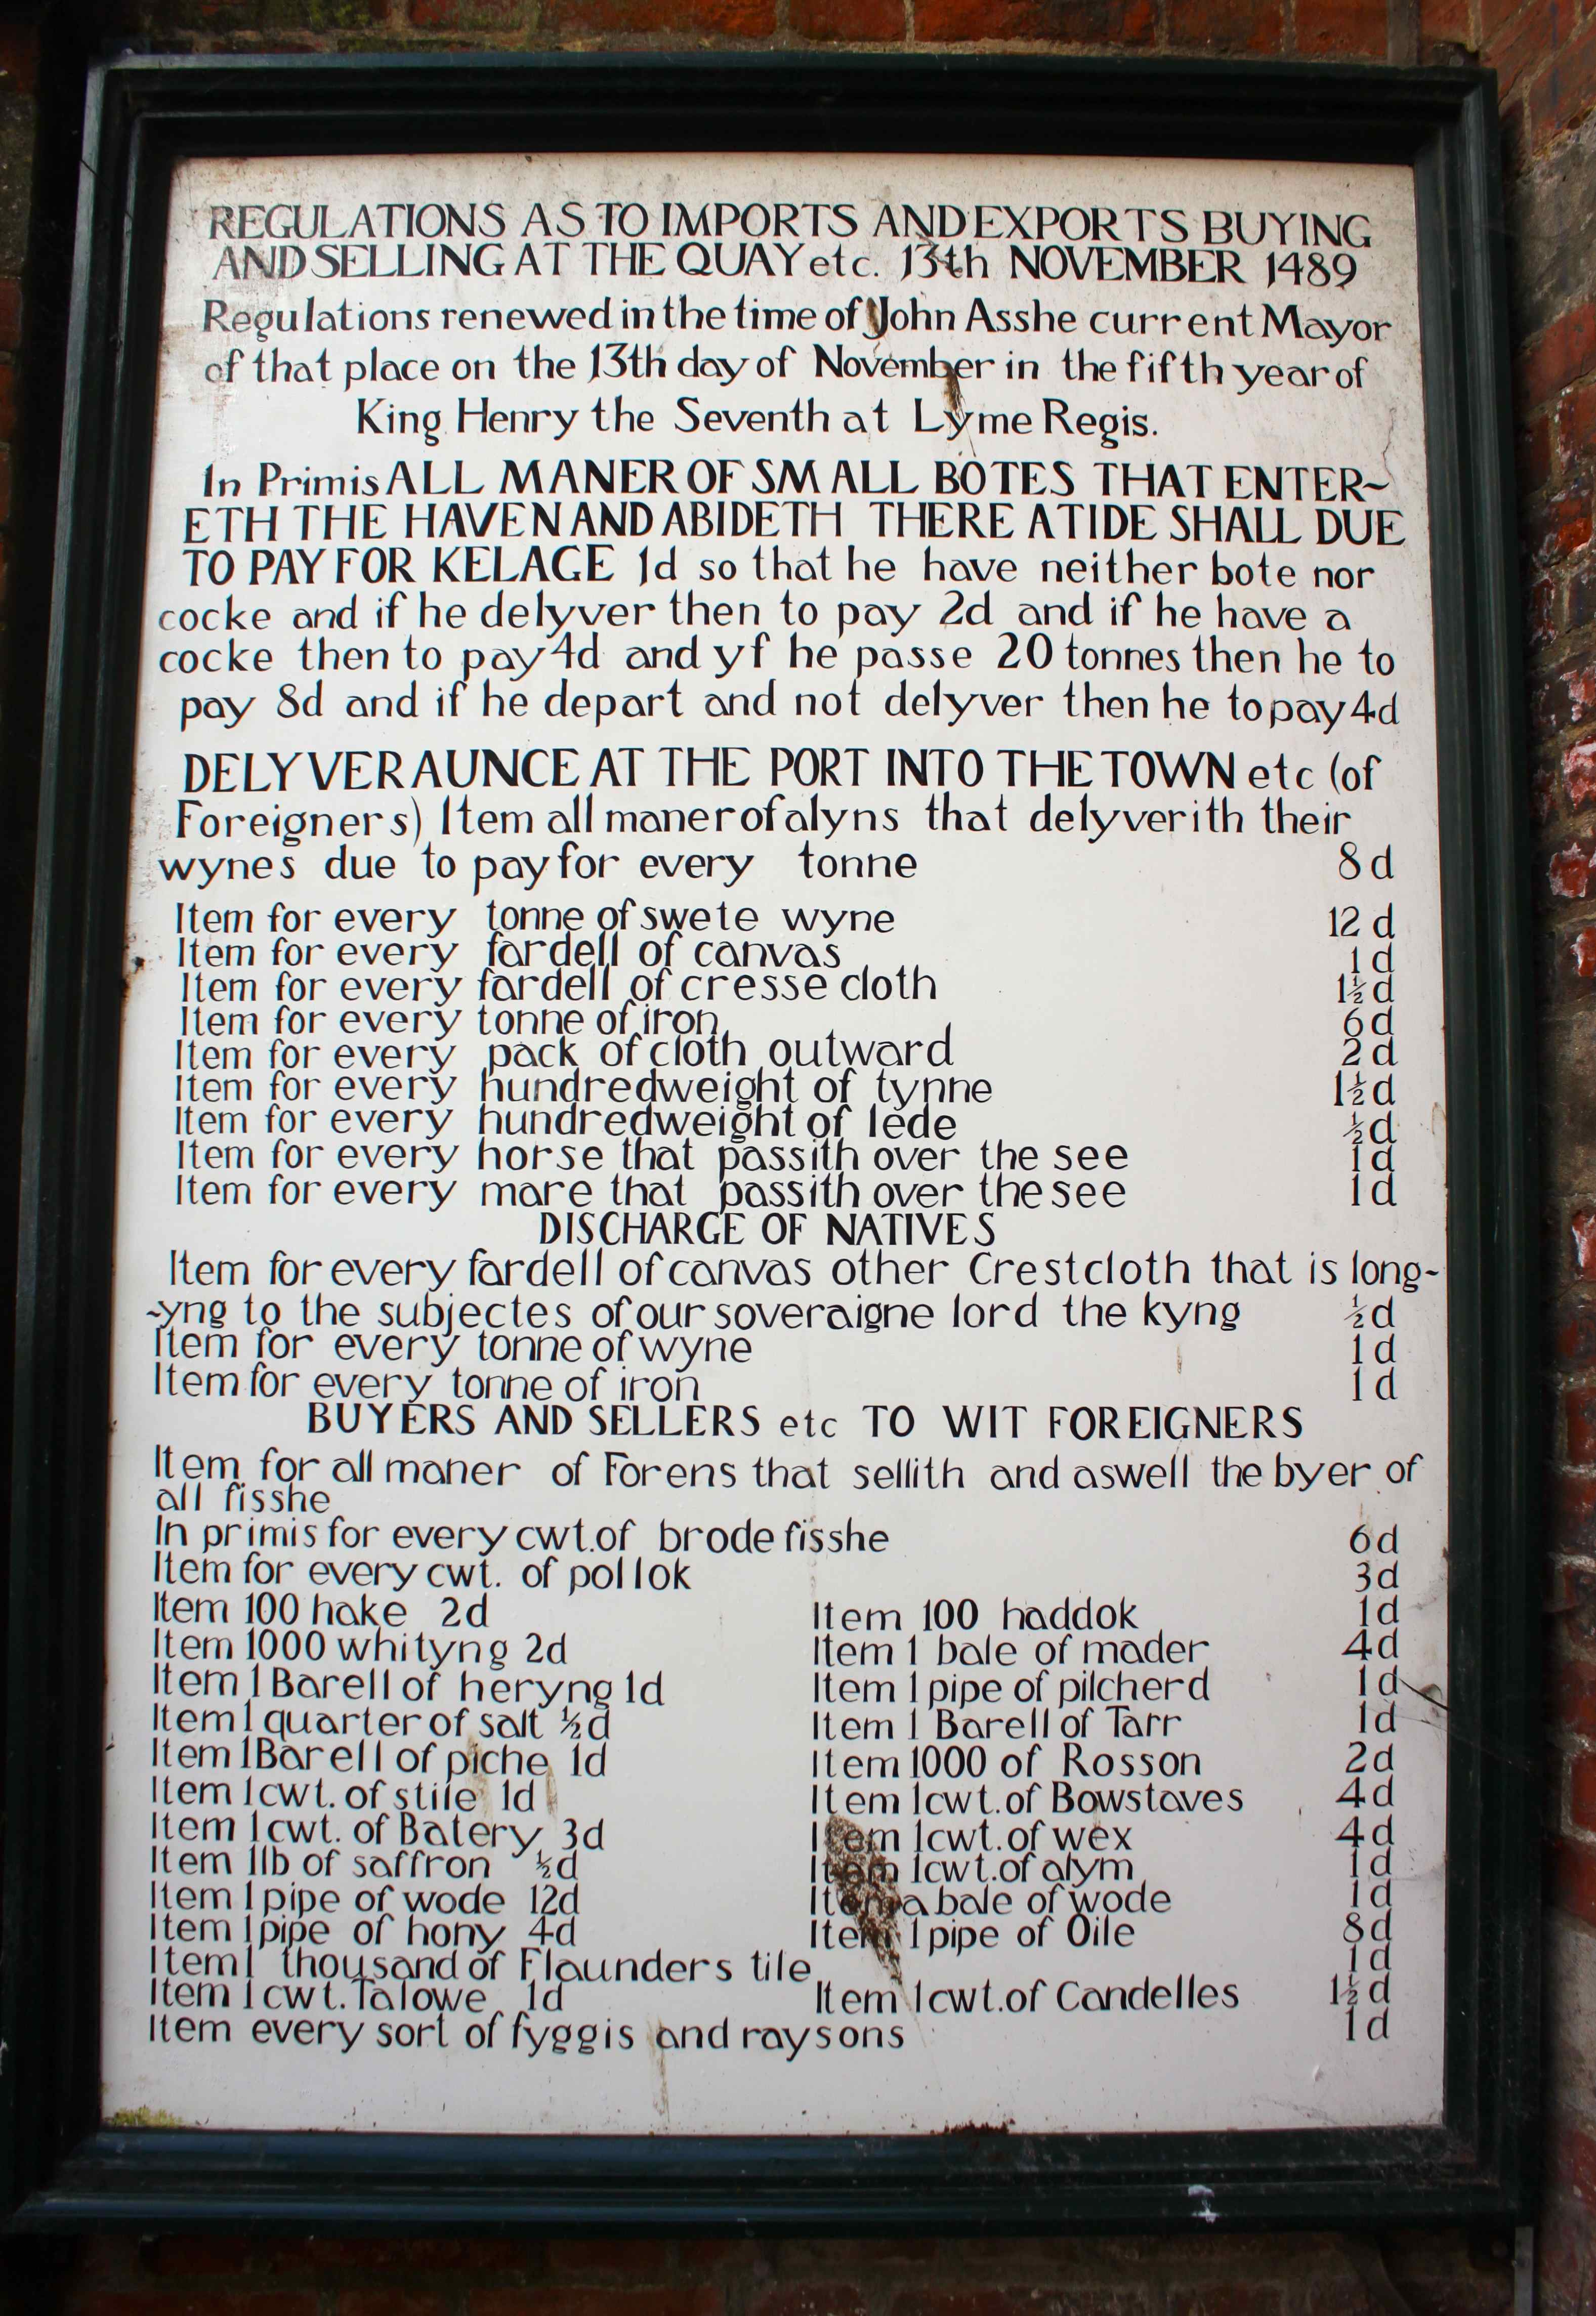 REGULATIONS AS TO IMPORTS AND EXPORTS BUYING
AND SELLING AT THE QUAY etc. 13th NOVEMBER 1489
Regulations renewed in the time of John Asshe current Mayor
of that place on the 13th day of November in the fifth year of
King Henry the Seventh at Lyme Regis.
In Primis ALL MANER OF SMALL BOTES THAT ENTER~
ETH THE HAVEN AND ABIDETH THERE A TIDE SHALL DUE
TO PAY FOR KELAGE 1d so that he have neither bote nor
cocke and if he delyver then to pay 2d and if he have a
cocke then to pay 4d and yf he passe 20 tonnes then he to
pay 8d and if he depart and not delyver then he to pay 4d
DELYVERAUNCE AT THE PORT INTO THE TOWN etc (of
Foreigners) Item all maner of alyns that delyverith their
wynes due to pay for every tonne 8d
Item for every tonne of swete wyne 12d
Item for every fardell of canvas 1d
Item for every fardell of cresse cloth 1½d
Item for every tonne of iron 6d
Item for every pack of cloth outward 2d
Item for every hundredweight of tynne 1½d
Item for every hundredweight of lede ½d
Item for every horse that passith over the see 1d
Item for every mare that passith over the see 1d
DISCHARGE OF NATIVES
Item for every fardell of canvas other Crestcloth that is long-
~yng to the subjectes of our soveraigne lord the kyng ½d
Item for every tonne of wyne 1d
Item for every tonne of iron 1d
BUYERS AND SELLERS etc TO WIT FOREIGNERS
Item for all maner of Forens that sellith and aswell the byer of
all fisshe
In primis for every cwt. of brode fisshe 6d
Item for every cwt. of pollok 3d
Item 100 hake 2d Item 100 haddok 1d
Item 1000 whityng 2d Item 1 bale of mader 4d
Item 1 Barell of heryng 1d Item 1 pipe of pilcherd 1d
Item 1 quarter of salt ½d Item 1 Barell of Tarr 1d
Item 1 Barell of piche 1d Item 1000 of Rosson 2d
Item 1 cwt. of stile 1d Item 1 cwt. of Bowstaves 4d
Item 1 cwt. of Batery 3d Item 1 cwt. of wex 4d
Item 1lb of saffron ½d Item 1 cwt. of alym 1d
Item 1 pipe of wode 12d Item a bale of wode 1d
Item 1 pipe of hony 4d Item 1 pipe of Oile 8d
Item 1 thousand of Flaunders tile 1d
Item 1 cwt. Talowe 1d Item 1 cwt. of Candelles 1½d
Item every sort of fyggis and raysons 1d